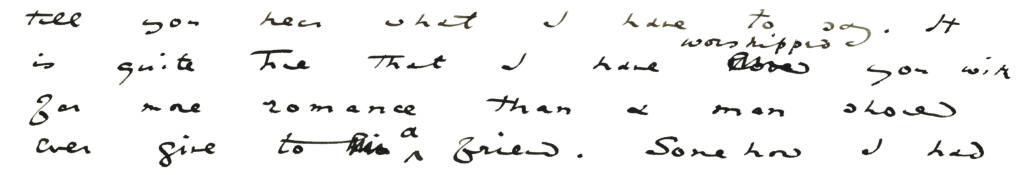 till you hear what I have to say. It
is quite true that I have worshipped you with
far more romance than a man should
ever give to a friend. Somehow I had